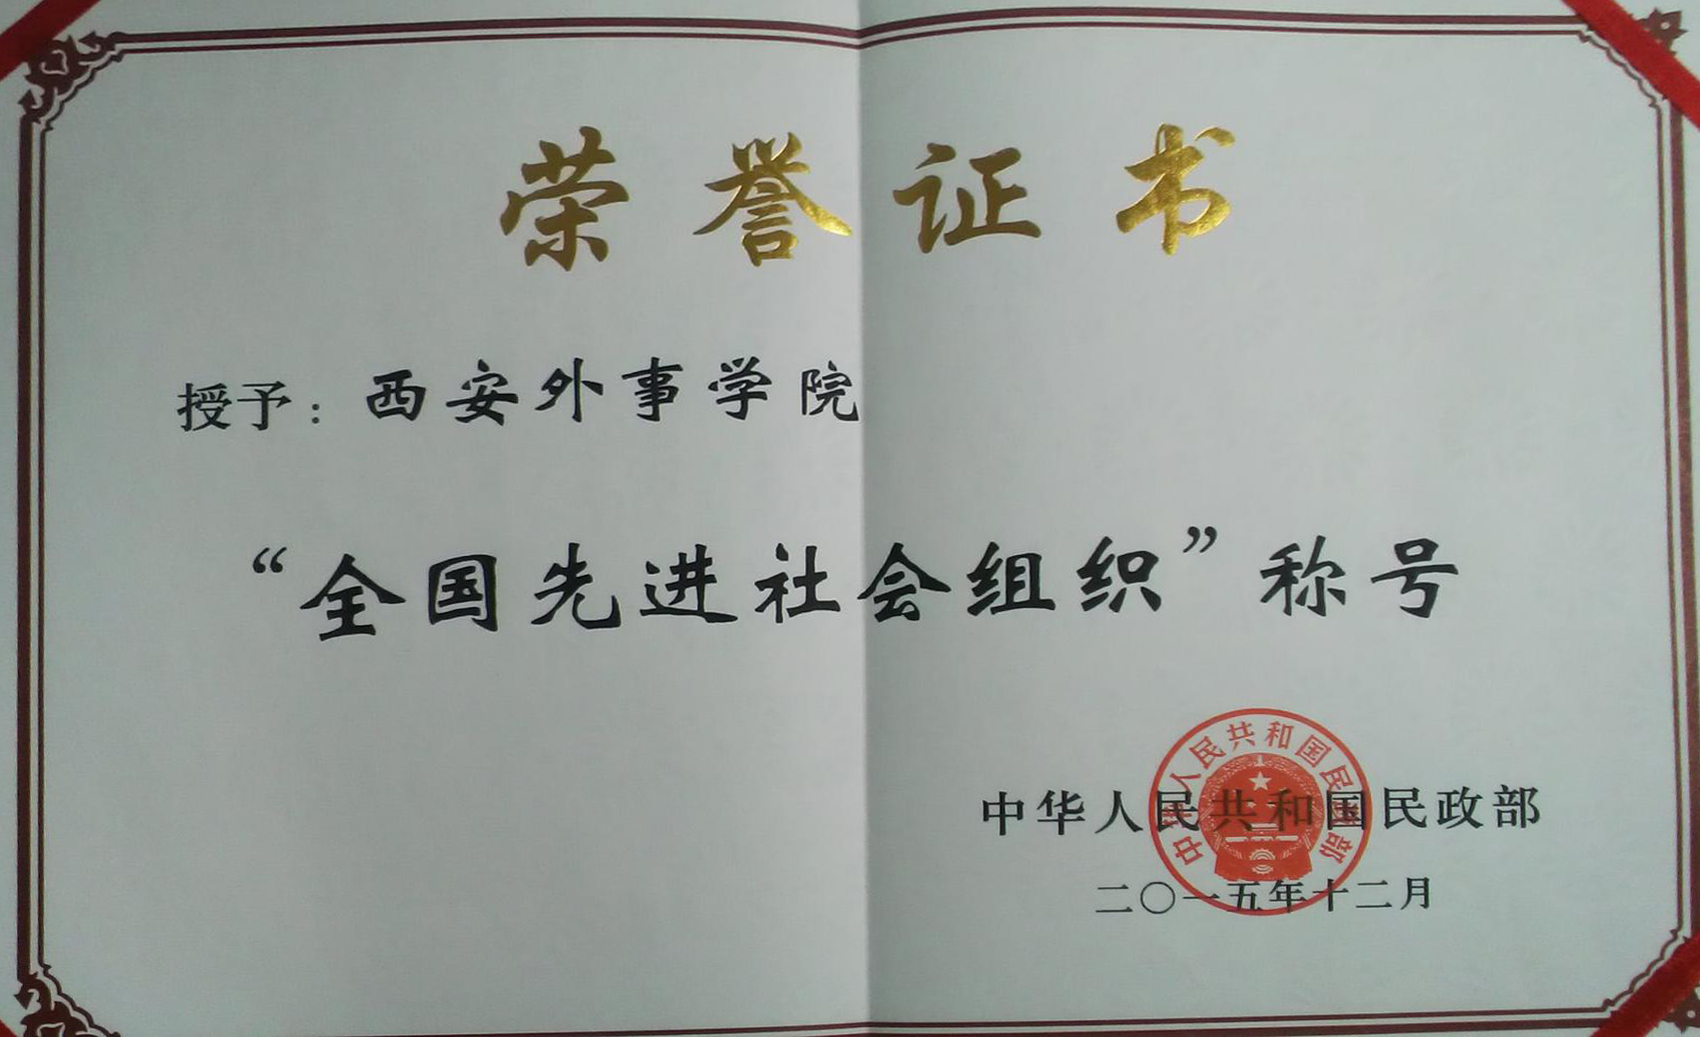 荣誉证书
授予：西安外事学院
“全国先进社会组织”称号
中华人民共和国民政部
中华人民共和国民政部
二〇一五年十二月